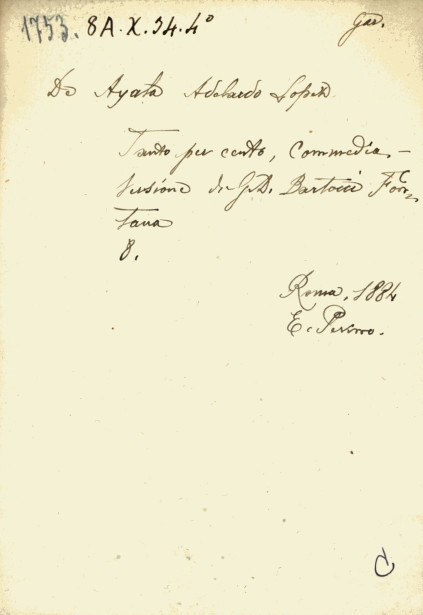 1753. 8A.X.34.4° Gar.
De Ayala Adelardo Lopez
Tanto per cento, Commedia -
Versione di G.D. Bartocci Fon=
tana
8.
Roma, 1884
E. Perino.
C